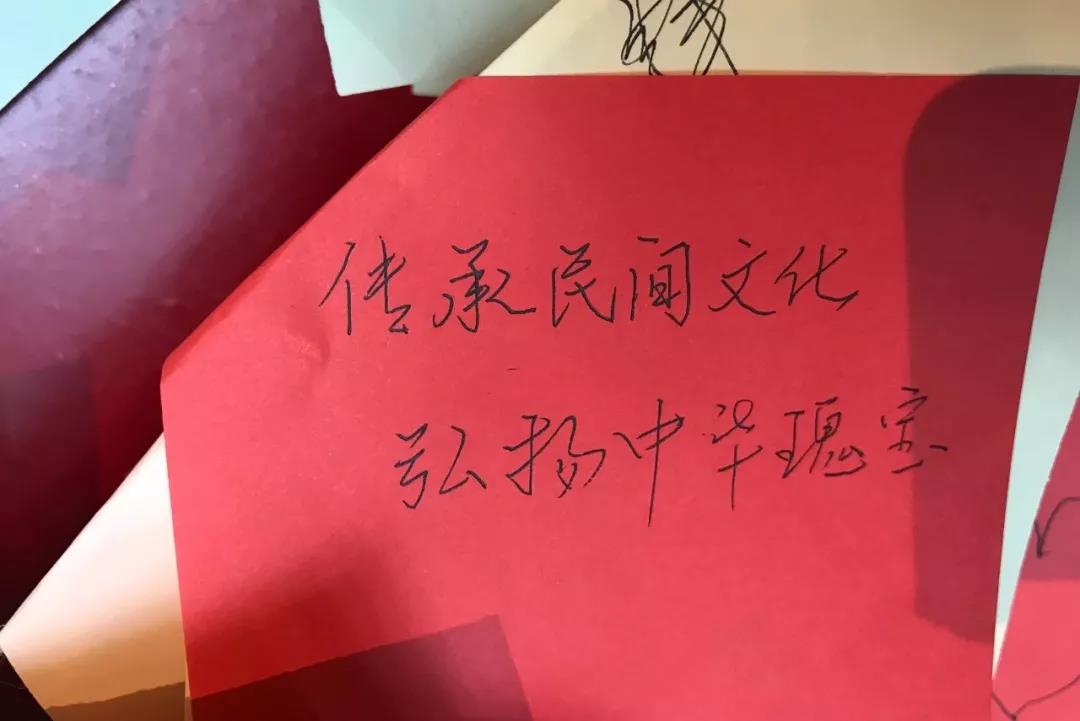 传承民间文化
弘扬中华瑰宝